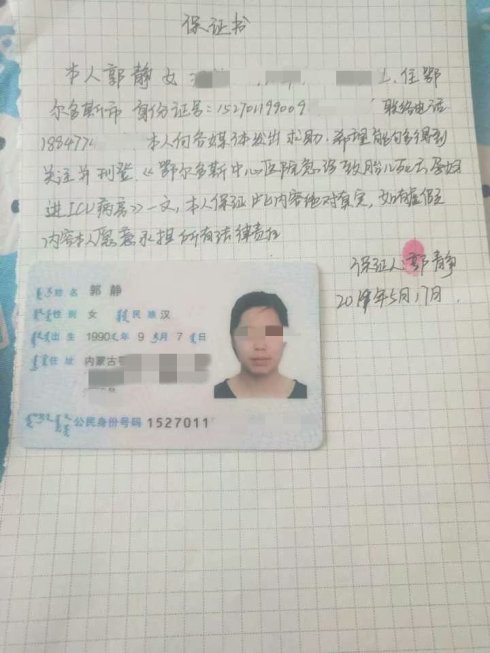 保证书
本人郭静女 住鄂
尔多斯市 身份证号:15270199009 联络电话
1894772 本人向各媒体发出求助,希望能够得到
关注并刊登《鄂尔多斯中心医院急诊致胎儿死亡 孕妇
进ICU病房》一文,本人保证以上内容绝对真实,如有虚假
内容本人愿意承担所有法律责任
保证人:郭静
5月17日
姓名 郭静
性别 女 民族 汉
出生 1990年9月7日
住址 内蒙古
公民身份号码 1527011